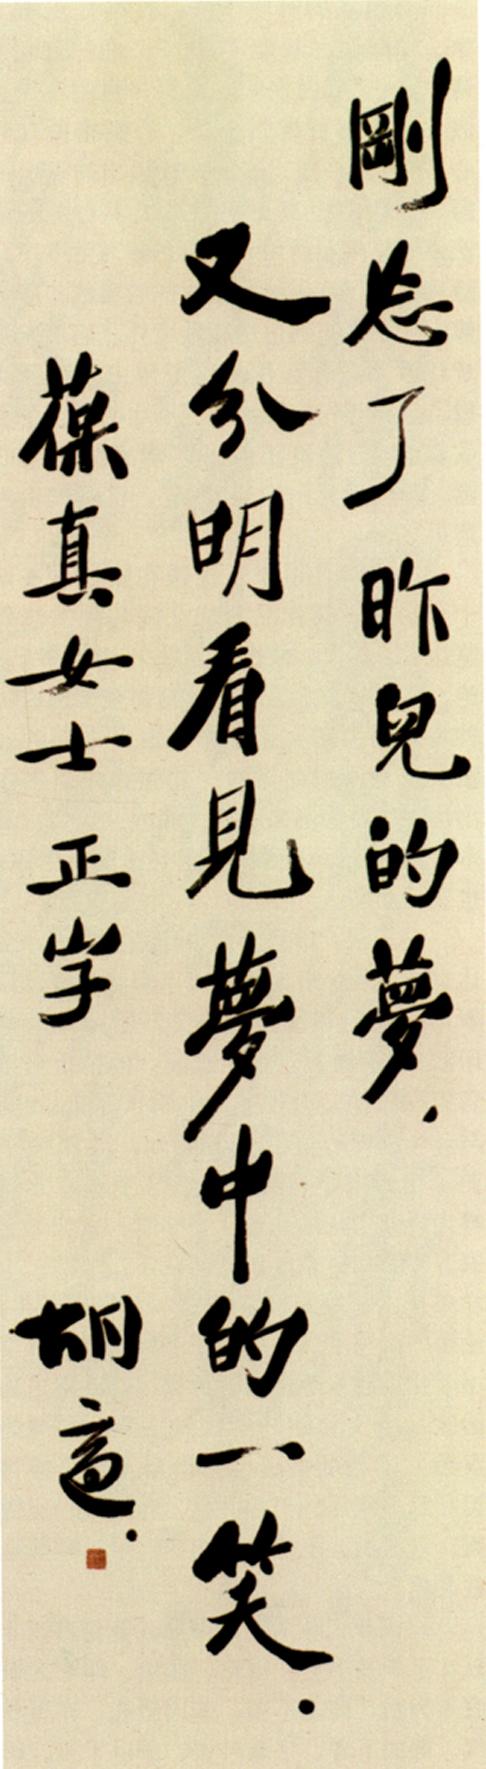 剛忘了昨兒的夢.
又分明看見夢中的一笑.
葆真女士 正字 胡適.